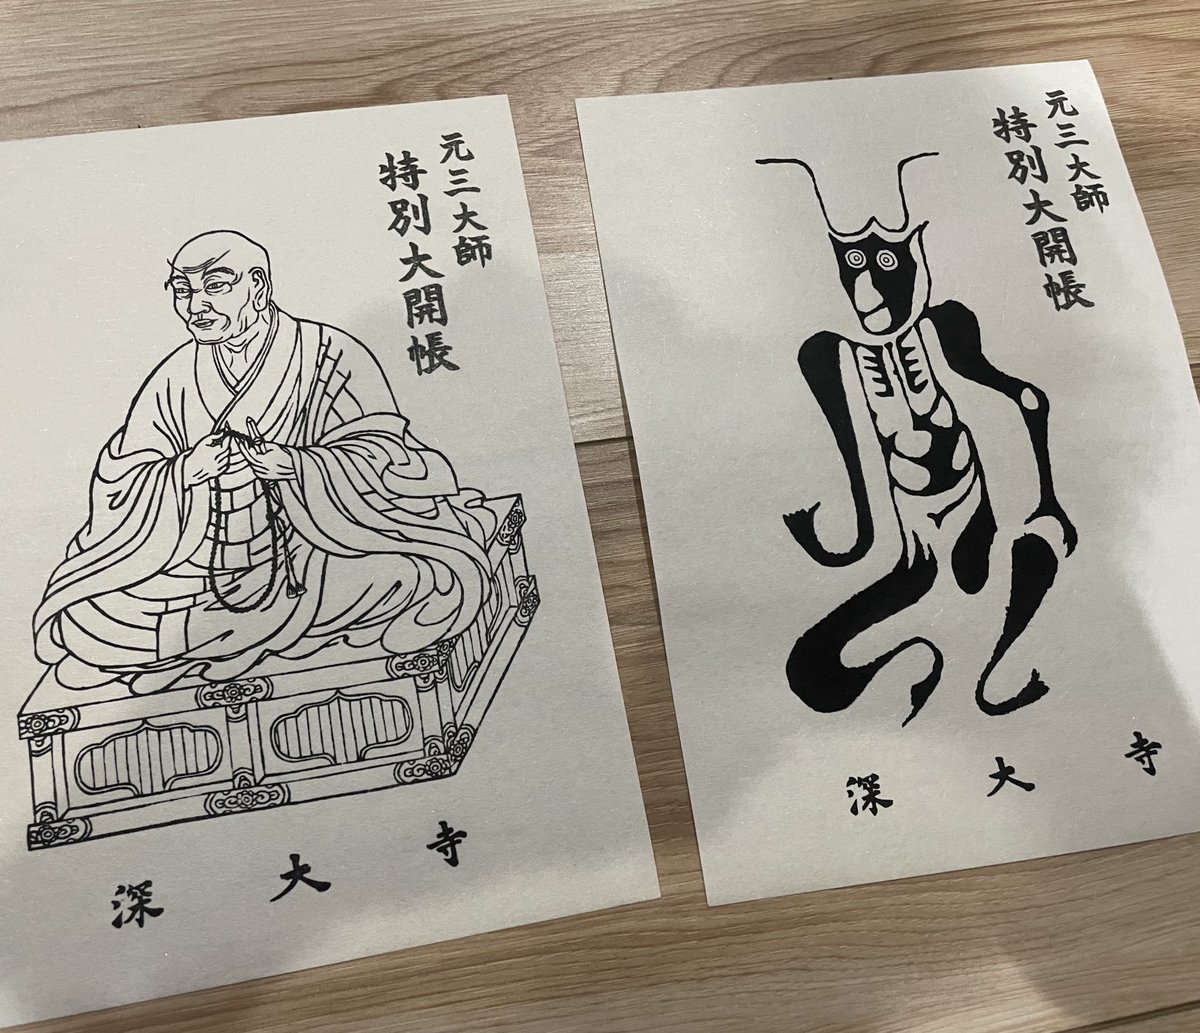 元三大師
特別大開帳
深大寺
元三大師
特別大開帳
深大寺